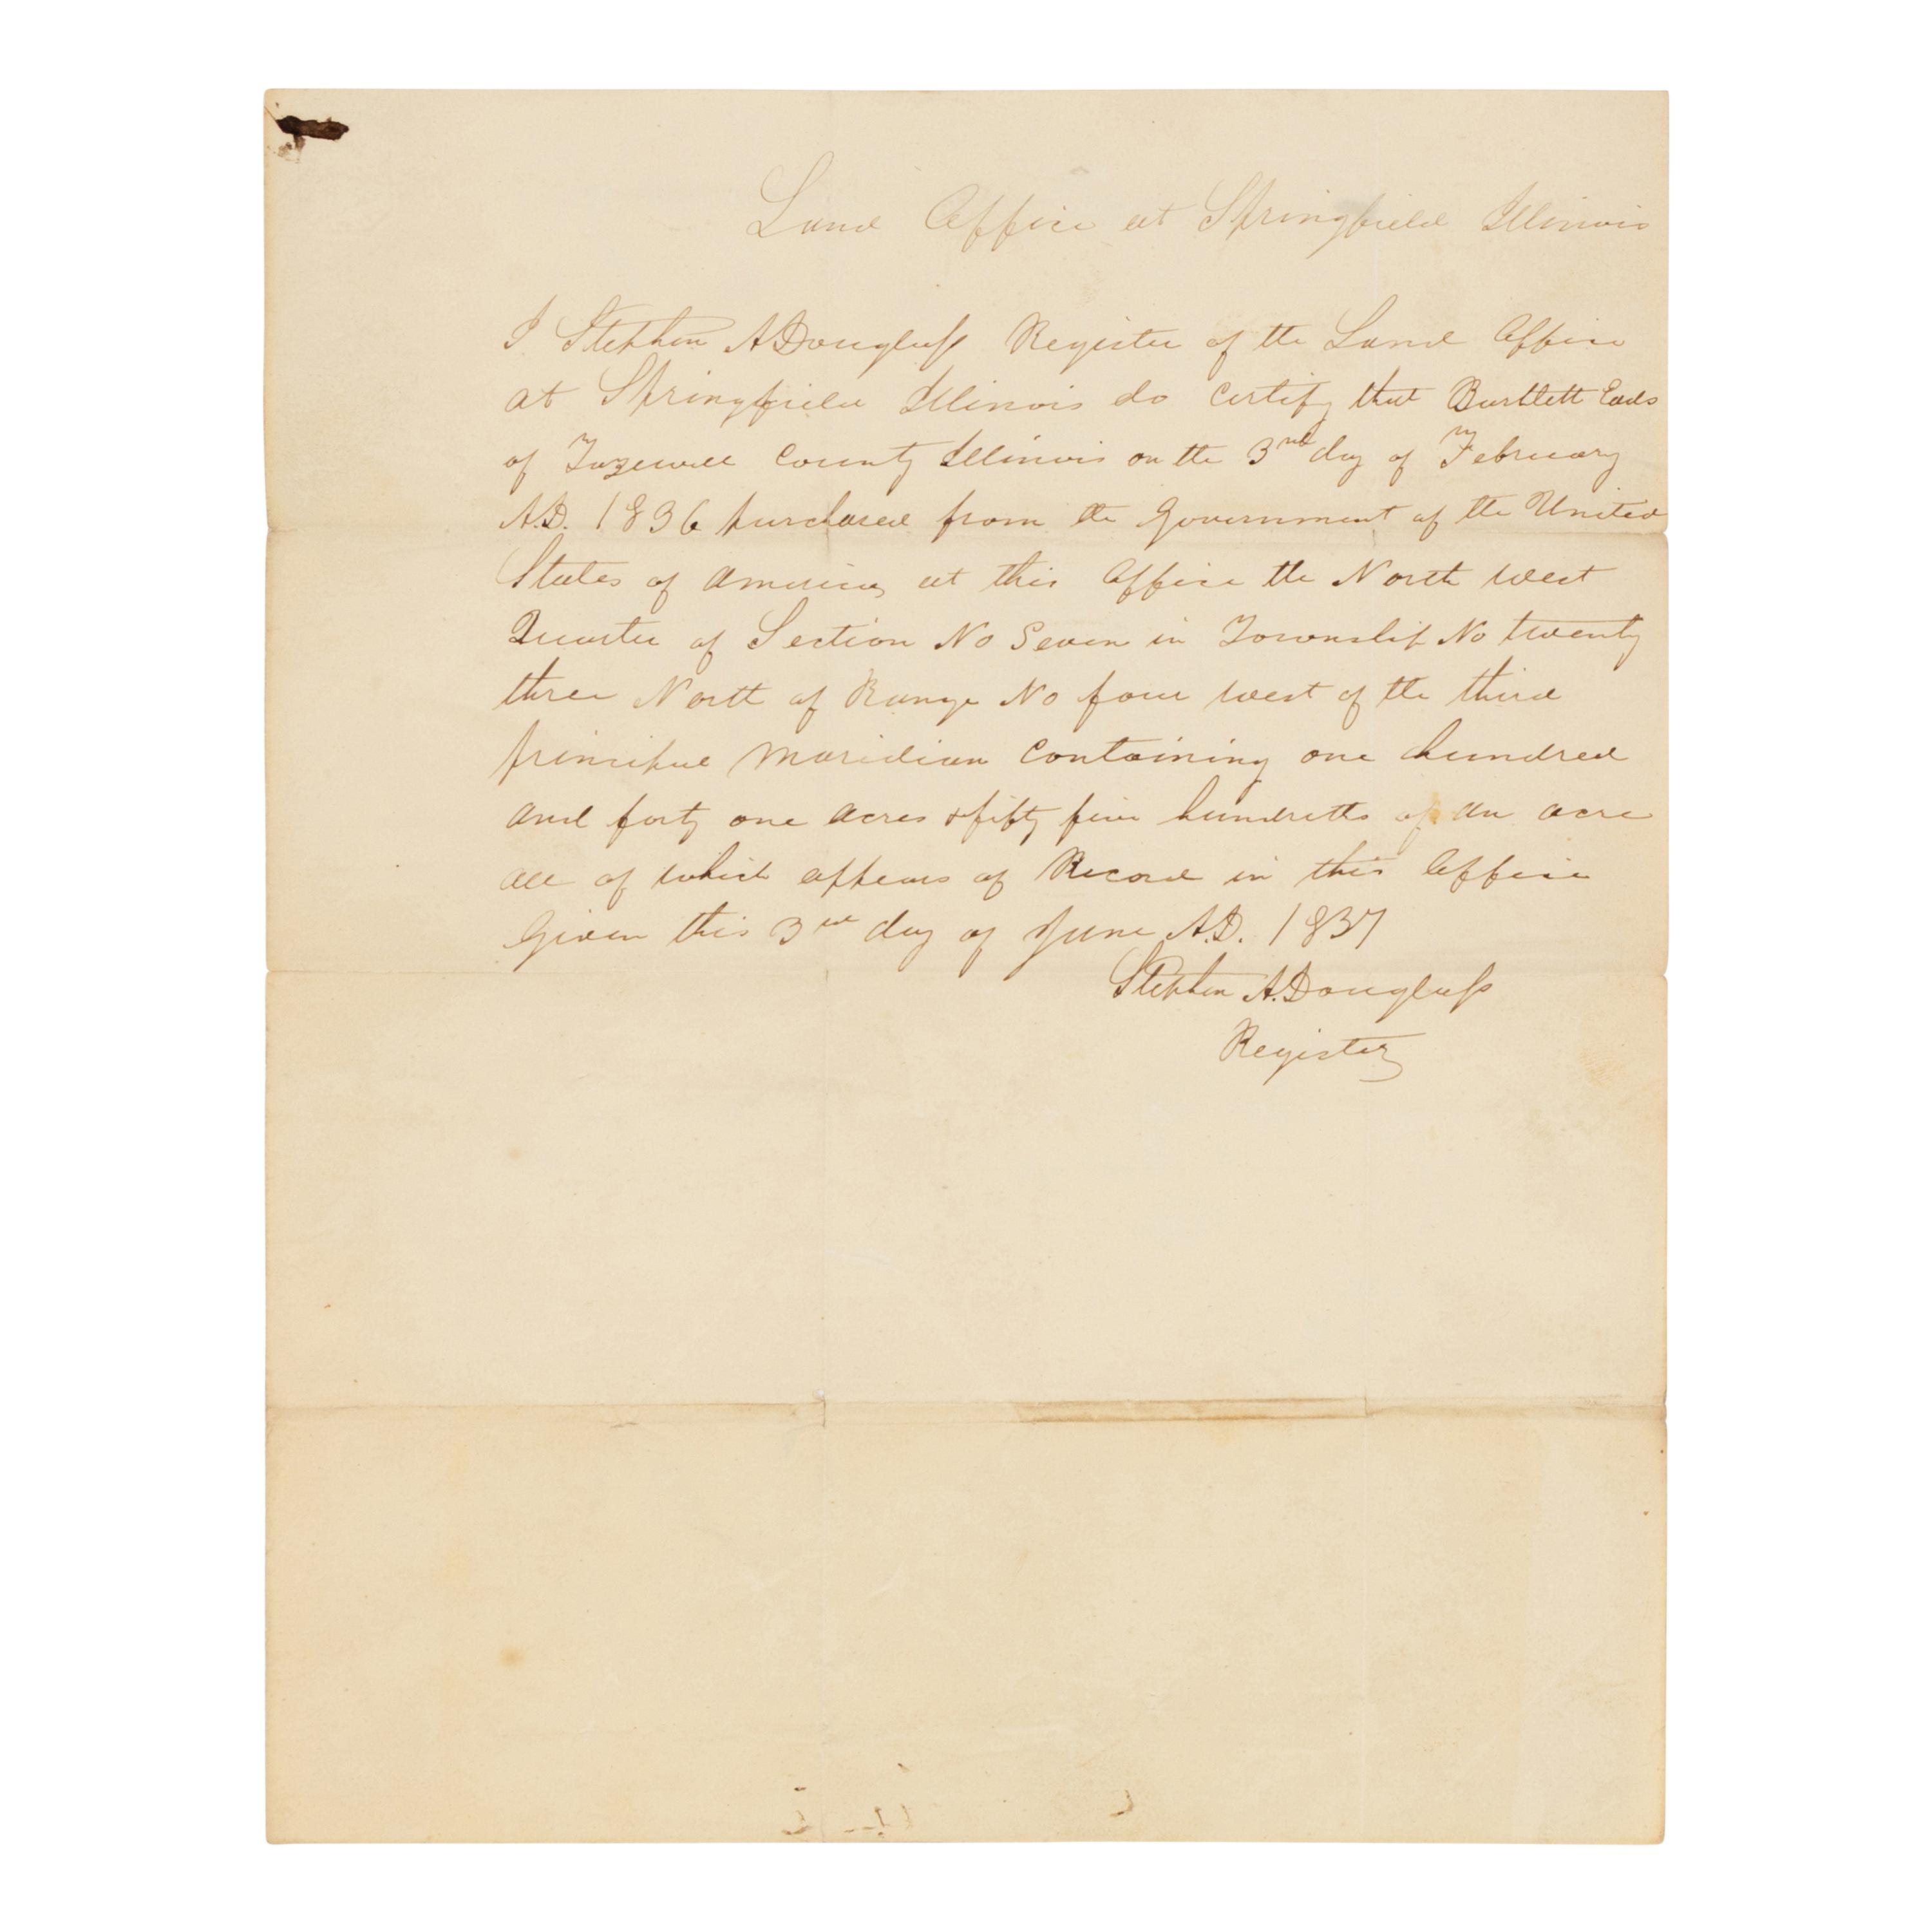 Land Office at Springfield Illinois
I Stephen A Douglass Register of the Land Office
at Springfield Illinois do certify that Bartlett Eads
of Tazewell County Illinois on the 3rd day of February
A.D. 1836 purchased from the Government of the United
States of America at this Office the North West
Quarter of Section No Seven in Township No twenty
three North of Range No four west of the third
principal Maridian Containing one hundred
and forty one acres & fifty five hundretts of an acre
all of which appears of Record in this Office
Given this 3rd day of June A.D. 1837
Stephen A. Douglass
Register